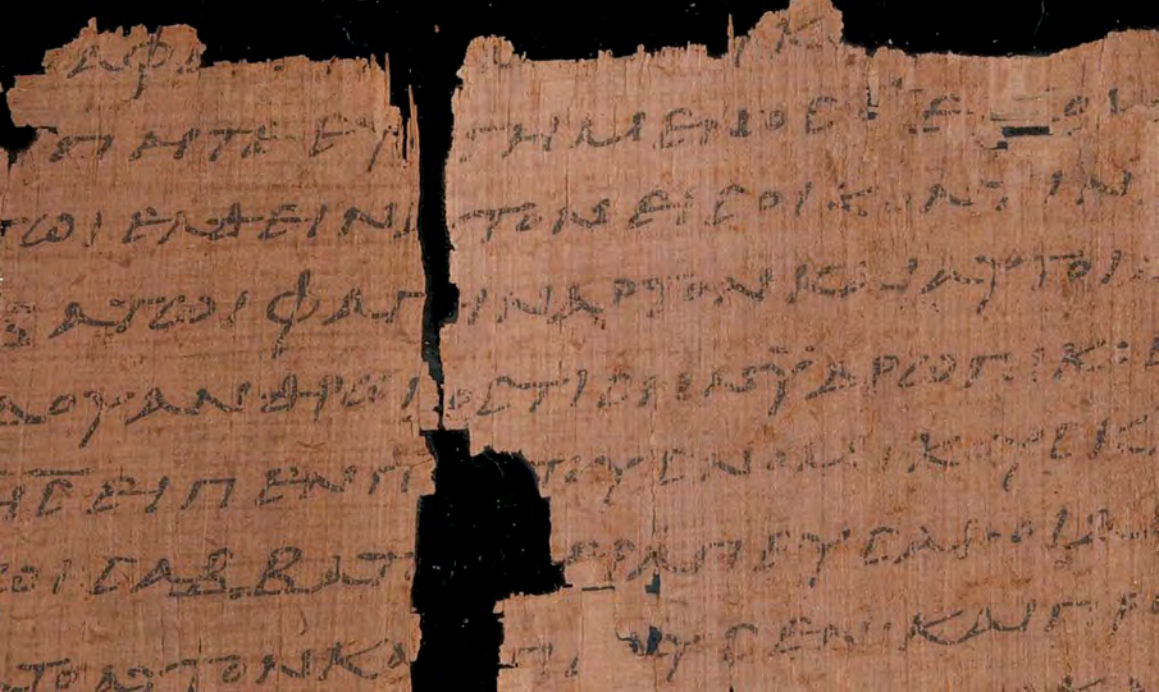 ΑΦΙ Κ
ΙΠΗΤΕ ΕΥ ΓΗΜΕΝΟϹ Ο Ε
ΤΩΙ ΕΛΘΕΙΝ ΤΟΝ ΕΙϹ ΟΙΚΟΝ ΤΙΝ
ΒΑΤΩΙ ΦΑΓ ΙΝ ΑΡΤΟΝ ΚΑΙ ΑΥΤΟΙ
ΔΟΥ ΑΝΘΡΩΠΟϹ ΤΙϹ ΗΝ ΫΔΡΩΠΙΚΟϹ Ε
Η̅Ϲ̅ ΕΙΠΕΝ Π ΤΟΥϹ ΝΟΜΙΚΟΥϹ Κ
ΤΟΙ ϹΑΒΒΑΤ ΕΡΑΠΕΥϹΑΙ
ΤΟ ΑΥΤΟΝ ΚΑ ΠΕΛΥϹΕΝ ΚΑΙ Π